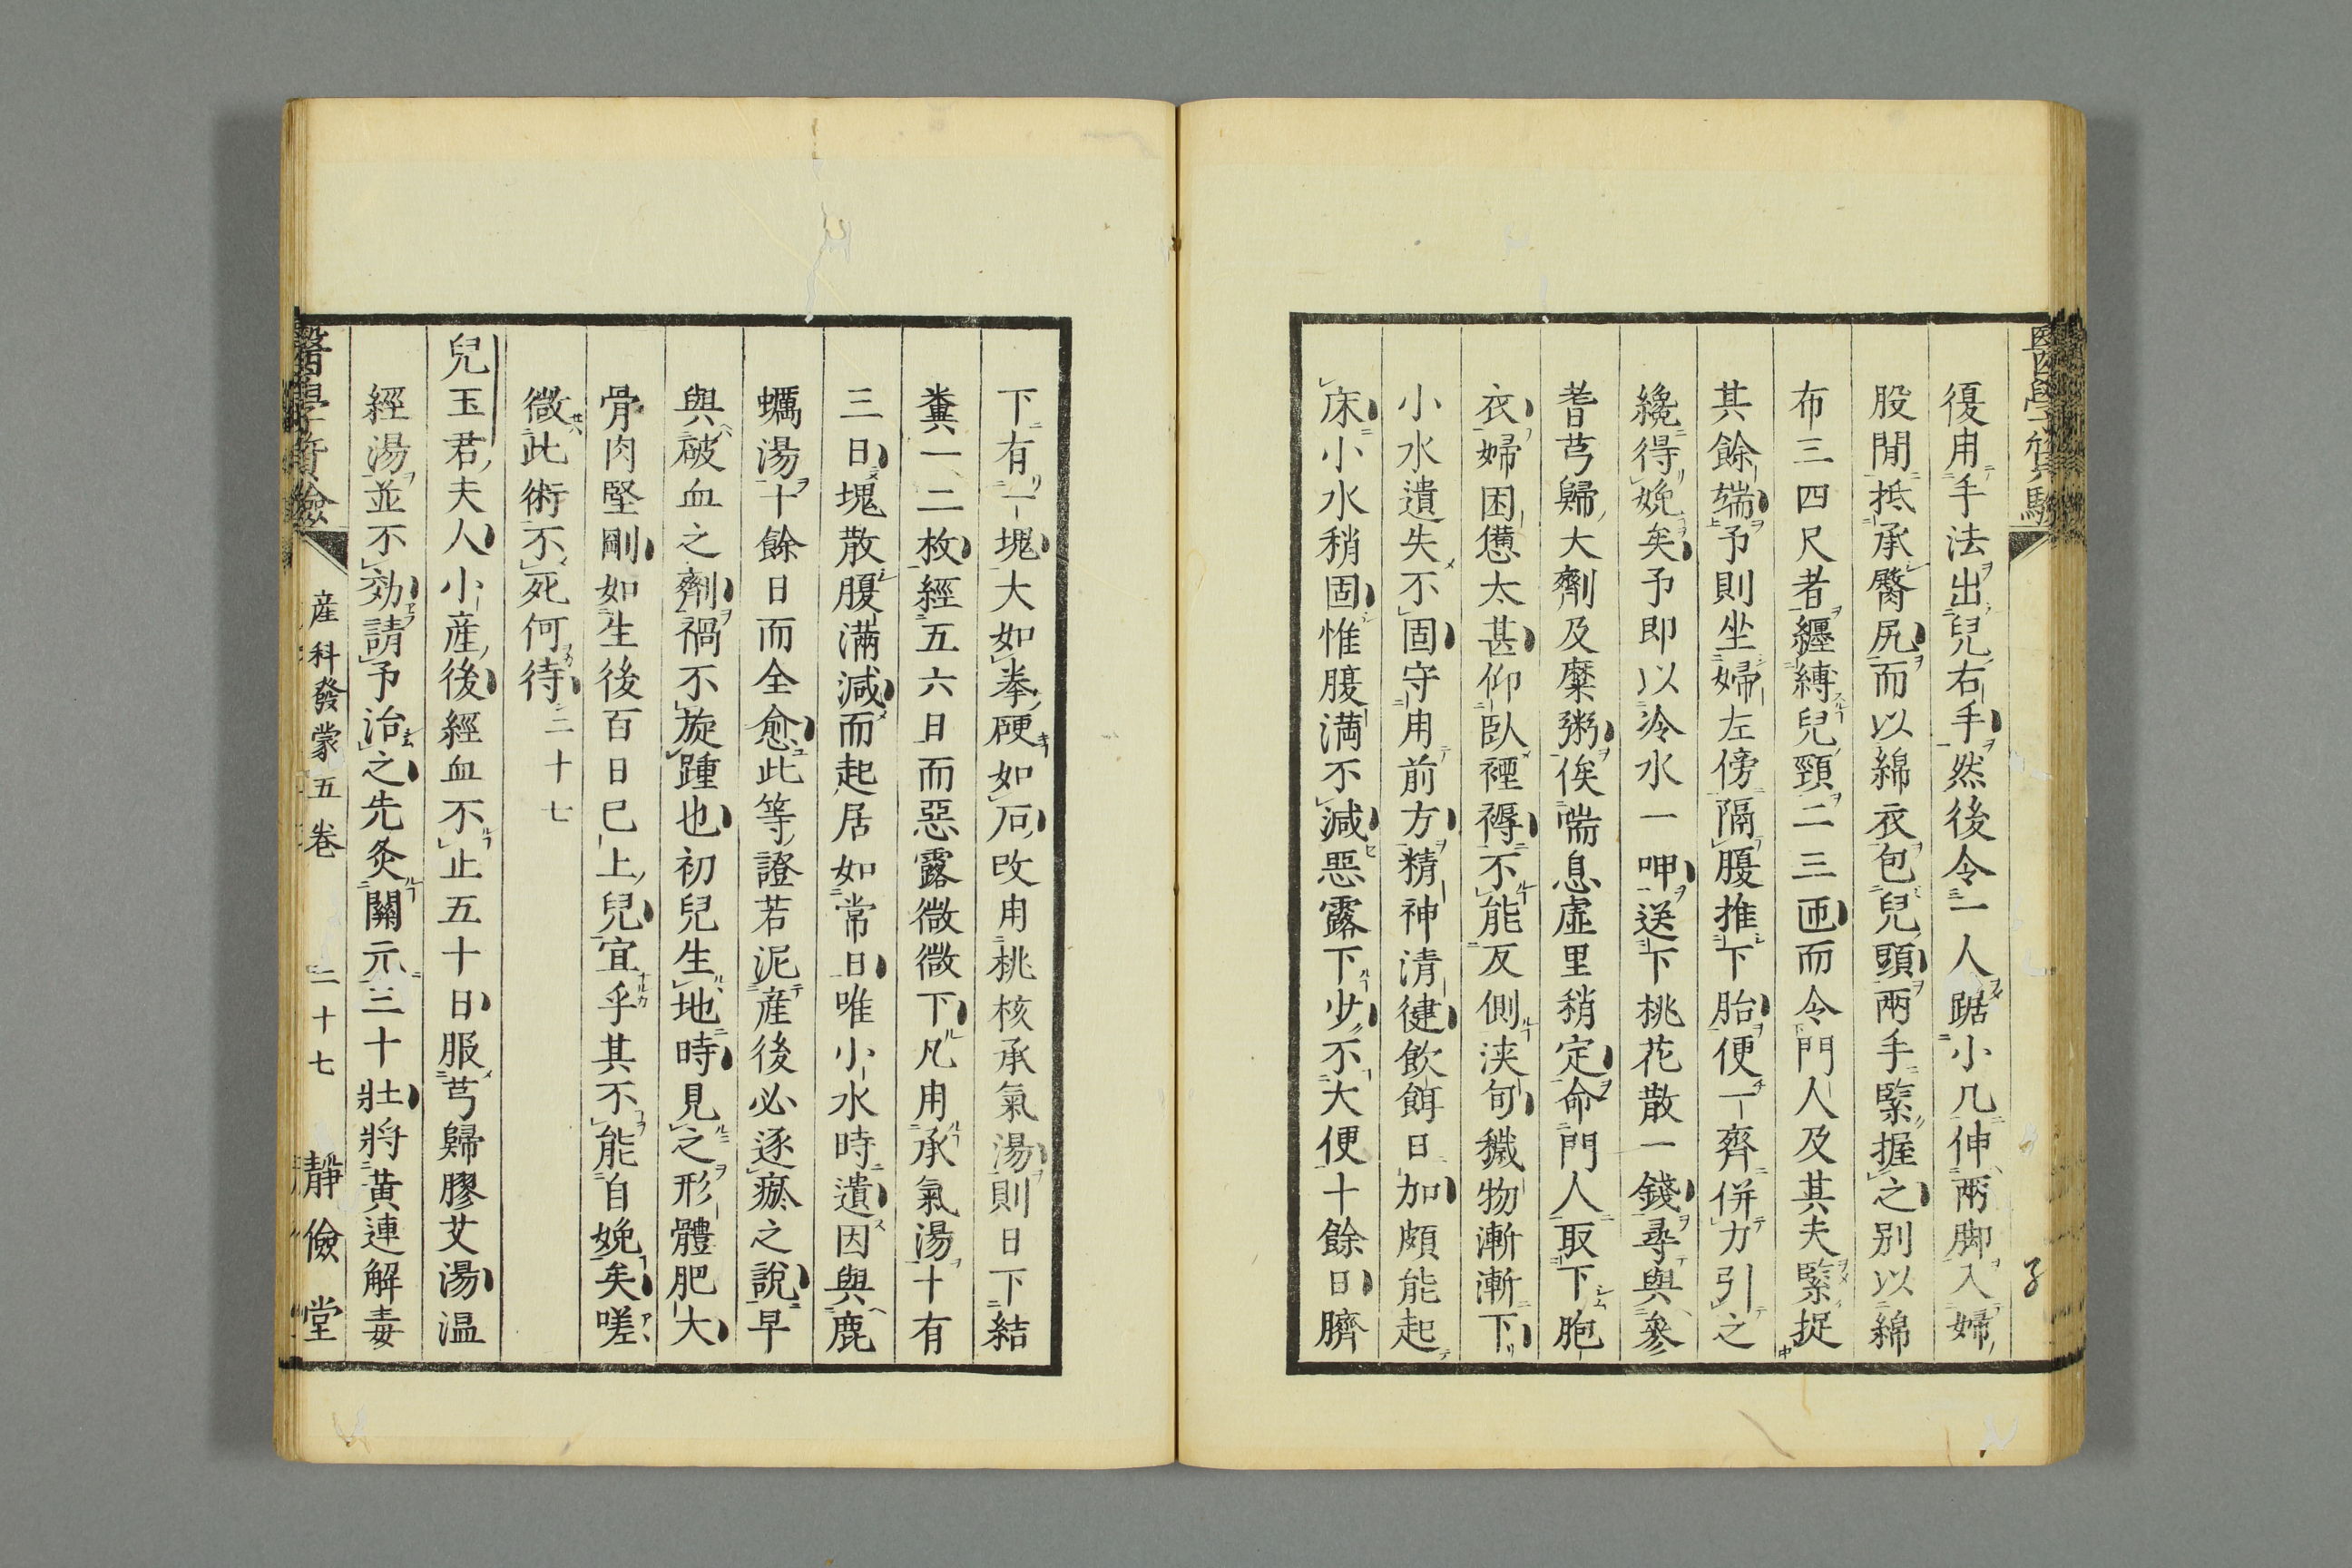 復用手法出兒右手然後令一人踞小几伸兩脚入婦
股間抵承臀尻而以綿衣包兒頭兩手緊握之別以綿
布三四尺者纏縛兒頸二三匝而令門人及其夫緊捉
其餘端予則坐婦左傍隔腹推下胎便一齊併力引之
纔得娩矣予即以冷水一呷送下桃花散一錢尋與參
耆芎歸大劑及糜粥俟喘息虛里稍定命門人取下胞
衣婦困憊太甚仰臥裀褥不能反側浹旬穢物漸漸下
小水遺失不固守用前方精神清健飲餌日加頗能起
床小水稍固惟腹満不減惡露下少不大便十餘日臍
下有一塊大如拳硬如石改用桃核承氣湯則日下結
糞一二枚經五六日而惡露微微下凡用承氣湯十有
三日塊散腹滿減而起居如常日唯小水時遺因與鹿
蠣湯十餘日而全愈此等證若泥産後必逐瘀之說早
與破血之劑禍不旋踵也初兒生地時見之形體肥大
骨肉堅剛如生後百日已上兒宜乎其不能自娩矣嗟
微此術不死何待二十七
兒玉君夫人小産後經血不止五十日服芎歸膠艾湯温
經湯並不効請予治之先灸關元三十壯將黃連解毒
醫學質驗
産科發蒙五卷
二十七
靜儉堂